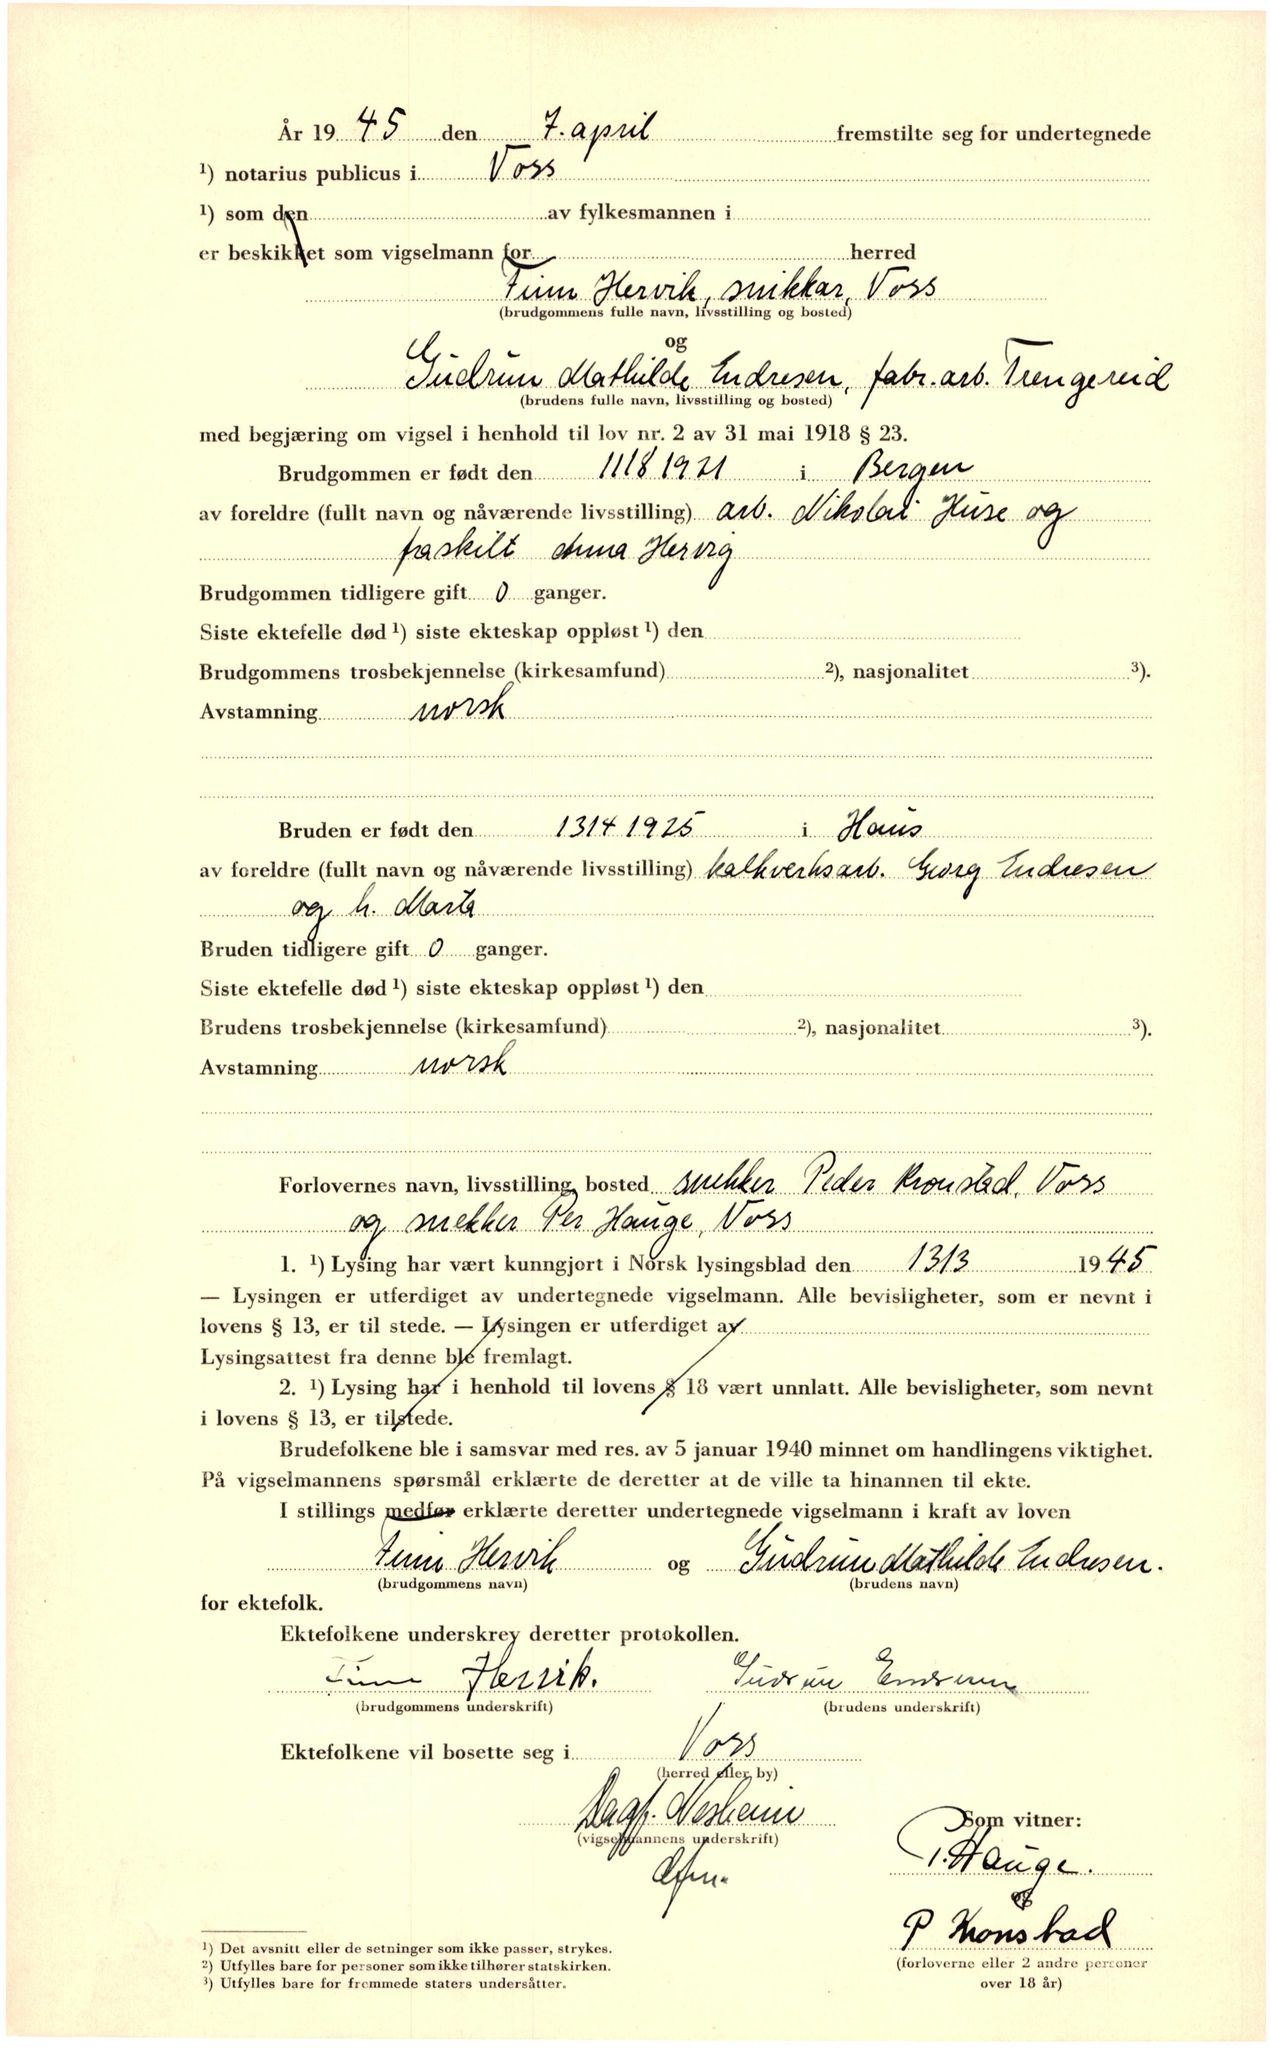 År 19 45 den 7. april fremstilte seg for undertegnede
¹) notarius publicus i Voss
¹) som den av fylkesmannen i
er beskikket som vigselmann for herred
Finn Hervik, snikkar, Voss
(brudgommens fulle navn, livsstilling og bosted)
og
Gudrun Mathilde Endresen, fabr. arb. Trengereid
(brudens fulle navn, livsstilling og bosted)
med begjæring om vigsel i henhold til lov nr. 2 av 31 mai 1918 § 23.
Brudgommen er født den 11/8 1921 i Bergen
av foreldre (fullt navn og nåværende livsstilling) arb. Nikolai Huse og
fraskilt Anna Hervig
Brudgommen tidligere gift 0 ganger.
Siste ektefelle død ¹) siste ekteskap oppløst ¹) den
Brudgommens trosbekjennelse (kirkesamfund) ²), nasjonalitet ³).
Avstamning norsk
Bruden er født den 13/4 1925 i Haus
av foreldre (fullt navn og nåværende livsstilling) kalkverksarb. Georg Endresen
og h. Marta
Bruden tidligere gift 0 ganger.
Siste ektefelle død ¹) siste ekteskap oppløst ¹) den
Brudens trosbekjennelse (kirkesamfund) ²), nasjonalitet ³).
Avstamning norsk
Forlovernes navn, livsstilling, bosted snekker Peder Kronstad, Voss
og snekker Per Hauge, Voss
1. ¹) Lysing har vært kunngjort i Norsk lysingsblad den 13/3 19 45
— Lysingen er utferdiget av undertegnede vigselmann. Alle bevisligheter, som er nevnt i
lovens § 13, er til stede. — Lysingen er utferdiget av
Lysingsattest fra denne ble fremlagt.
2. ¹) Lysing har i henhold til lovens § 18 vært unnlatt. Alle bevisligheter, som nevnt
i lovens § 13, er tilstede.
Brudefolkene ble i samsvar med res. av 5 januar 1940 minnet om handlingens viktighet.
På vigselmannens spørsmål erklærte de deretter at de ville ta hinannen til ekte.
I stillings medfør erklærte deretter undertegnede vigselmann i kraft av loven
Finn Hervik og Gudrun Mathilde Endresen.
(brudgommens navn) (brudens navn)
for ektefolk.
Ektefolkene underskrev deretter protokollen.
Finn Hervik. Gudrun Endresen
(brudgommens underskrift) (brudens underskrift)
Ektefolkene vil bosette seg i Voss
(herred eller by)
Dagf. Nesheim
(vigselmannens underskrift)
Som vitner:
P. Hauge.
og
P Kronstad
(forloverne eller 2 andre personer
over 18 år)
¹) Det avsnitt eller de setninger som ikke passer, strykes.
²) Utfylles bare for personer som ikke tilhører statskirken.
³) Utfylles bare for fremmede staters undersåtter.